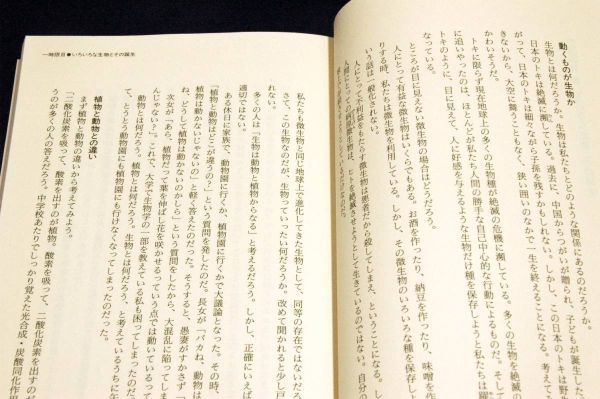 動くものが生物か
生物とは何だろうか。生物は私たちとどのような関係にあるのだろうか。
日本のトキは絶滅に瀕している。過去に、中国からつがいが贈られ、子どもが誕生した
が、日本のトキは細々ながら子孫を残すかもしれない。しかし、この日本のトキは野生
きないから、大空に舞うこともなく、狭い囲いのなかで一生を終えることになる。考えて
かわいそうだ。
トキに限らず現在地球上の多くの生物種が絶滅の危機に瀕している。多くの生物を絶滅の
に追いやったのは、ほとんどが私たち人間の勝手な自己中心的な行動によるものだ。そして
トキのように、目に見えて、人に好感を与えるような生物だけ種を保存しようと私たちは躍
なっている。
ところが目に見えない微生物の場合はどうだろう。
人にとって有益な微生物はいくらでもある。お酒を作ったり、納豆を作ったり、味噌を作
りする時、私たちは微生物を利用している。しかし、その微生物のいろいろな種を保存しよ
いう話は一般化されない。
人にとって不利益をもたらす微生物は悪者だから殺してしまえ、ということになる。
人にとっての病原微生物は、ヒトを絶滅させようとして生きているのではない。自分の
一時限目●いろいろな生物とその誕生
私たちも微生物と同じ地球上で進化してきた生物として、同等の存在ではないだろ
さて、この生物なのだが、生物っていったい何だろうか。改めて聞かれると少し戸
れない。
多くの人は「生物は動物と植物からなる」と考えるだろう。しかし、正確にいえば
適切ではない。
ある休日に家族で、動物園に行くか、植物園に行くかで大議論となった。その時、
「植物と動物はどこが違うの？」という質問を発したのだ。長女が「バカね、動物は
植物は動かないじゃないの」と軽く答えたのだった。そうすると、愚妻がすかさず「
ね、どうして植物は動かないのかしら」という質問をしたから、大混乱に陥ってしま
次女が「あら、植物だって葉を伸ばし花を咲かせるっていう点では動いているって
んじゃない？」これで、大学で生物学の一部を教えている私も困ってしまったのだ。
動物とは何だろう。植物とは何だろう。生物とは何だろう、と考えているうちに午
て、とうとう動物園にも植物園にも行けなくなってしまったのだった。
植物と動物との違い
まず植物と動物の違いから考えてみよう。
「二酸化炭素を吸って、酸素を出すのが植物。酸素を吸って、二酸化炭素を出すのが
うのが多くの人の答えだろう。中学校あたりでしっかり覚えた光合成・炭酸同化作用